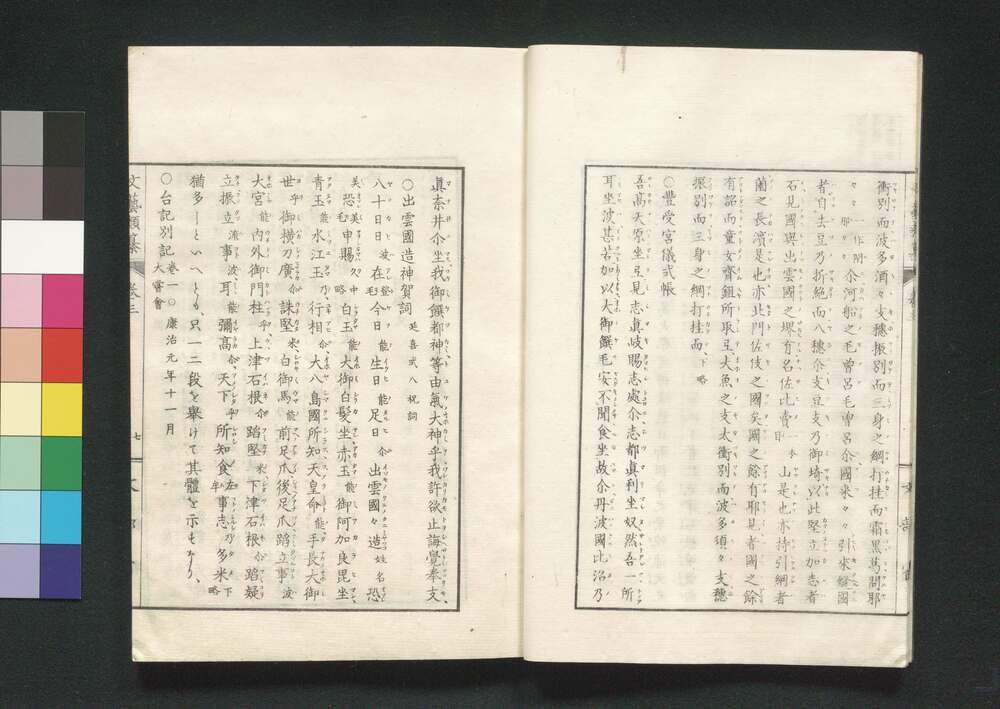 衝別而波多酒々支穗振別而三身之綱打挂而霜黑葛聞耶
々々爾河船之毛曾呂毛曾呂爾國來々々引來縫國
者自去豆乃折絶而八穗爾支豆支乃御埼以此堅立加志者
石見國與出雲國之堺有名佐比賣山是也亦持引綱者
薗之長濱是也亦北門佐伎之國矣國之餘有耶見者國之餘
有詔而童女𦙾鉏所取弖大魚之支太衝別而波多須々支穗
振別而三身之綱打挂而、下略
○豐受宮儀式帳
吾高天原坐弖見志眞岐賜志處爾志都眞利坐奴然吾一所
耳坐波甚苦加以大御饌毛安不聞食坐故爾丹波國比沼乃
眞奈井爾坐我御饌都神等由氣大神乎我許欲止誨覺奉支
○出雲國造神賀詞 延喜式八祝詞
八十日日波在毛今日能生日能足日爾出雲國々造姓名恐
美恐毛申賜久中略白玉能大御白髮坐赤玉能御阿加良毘坐
靑玉能水江玉乃行相爾大八島國所知天皇命能手長大御
世乎御横刀廣爾誅堅米白御馬能前足爪後足爪蹈立事波
大宮能内外御門柱乎上津石根爾蹈堅米下津石根爾蹈凝
立振立流事波耳能彌高爾天下乎所知食左牟事志乃多米下略
猶多しといへとも、只一二段を擧けて其體を示すなり、
○台記別記 卷一○康治元年十一月大嘗會
文藝類纂 卷三
七